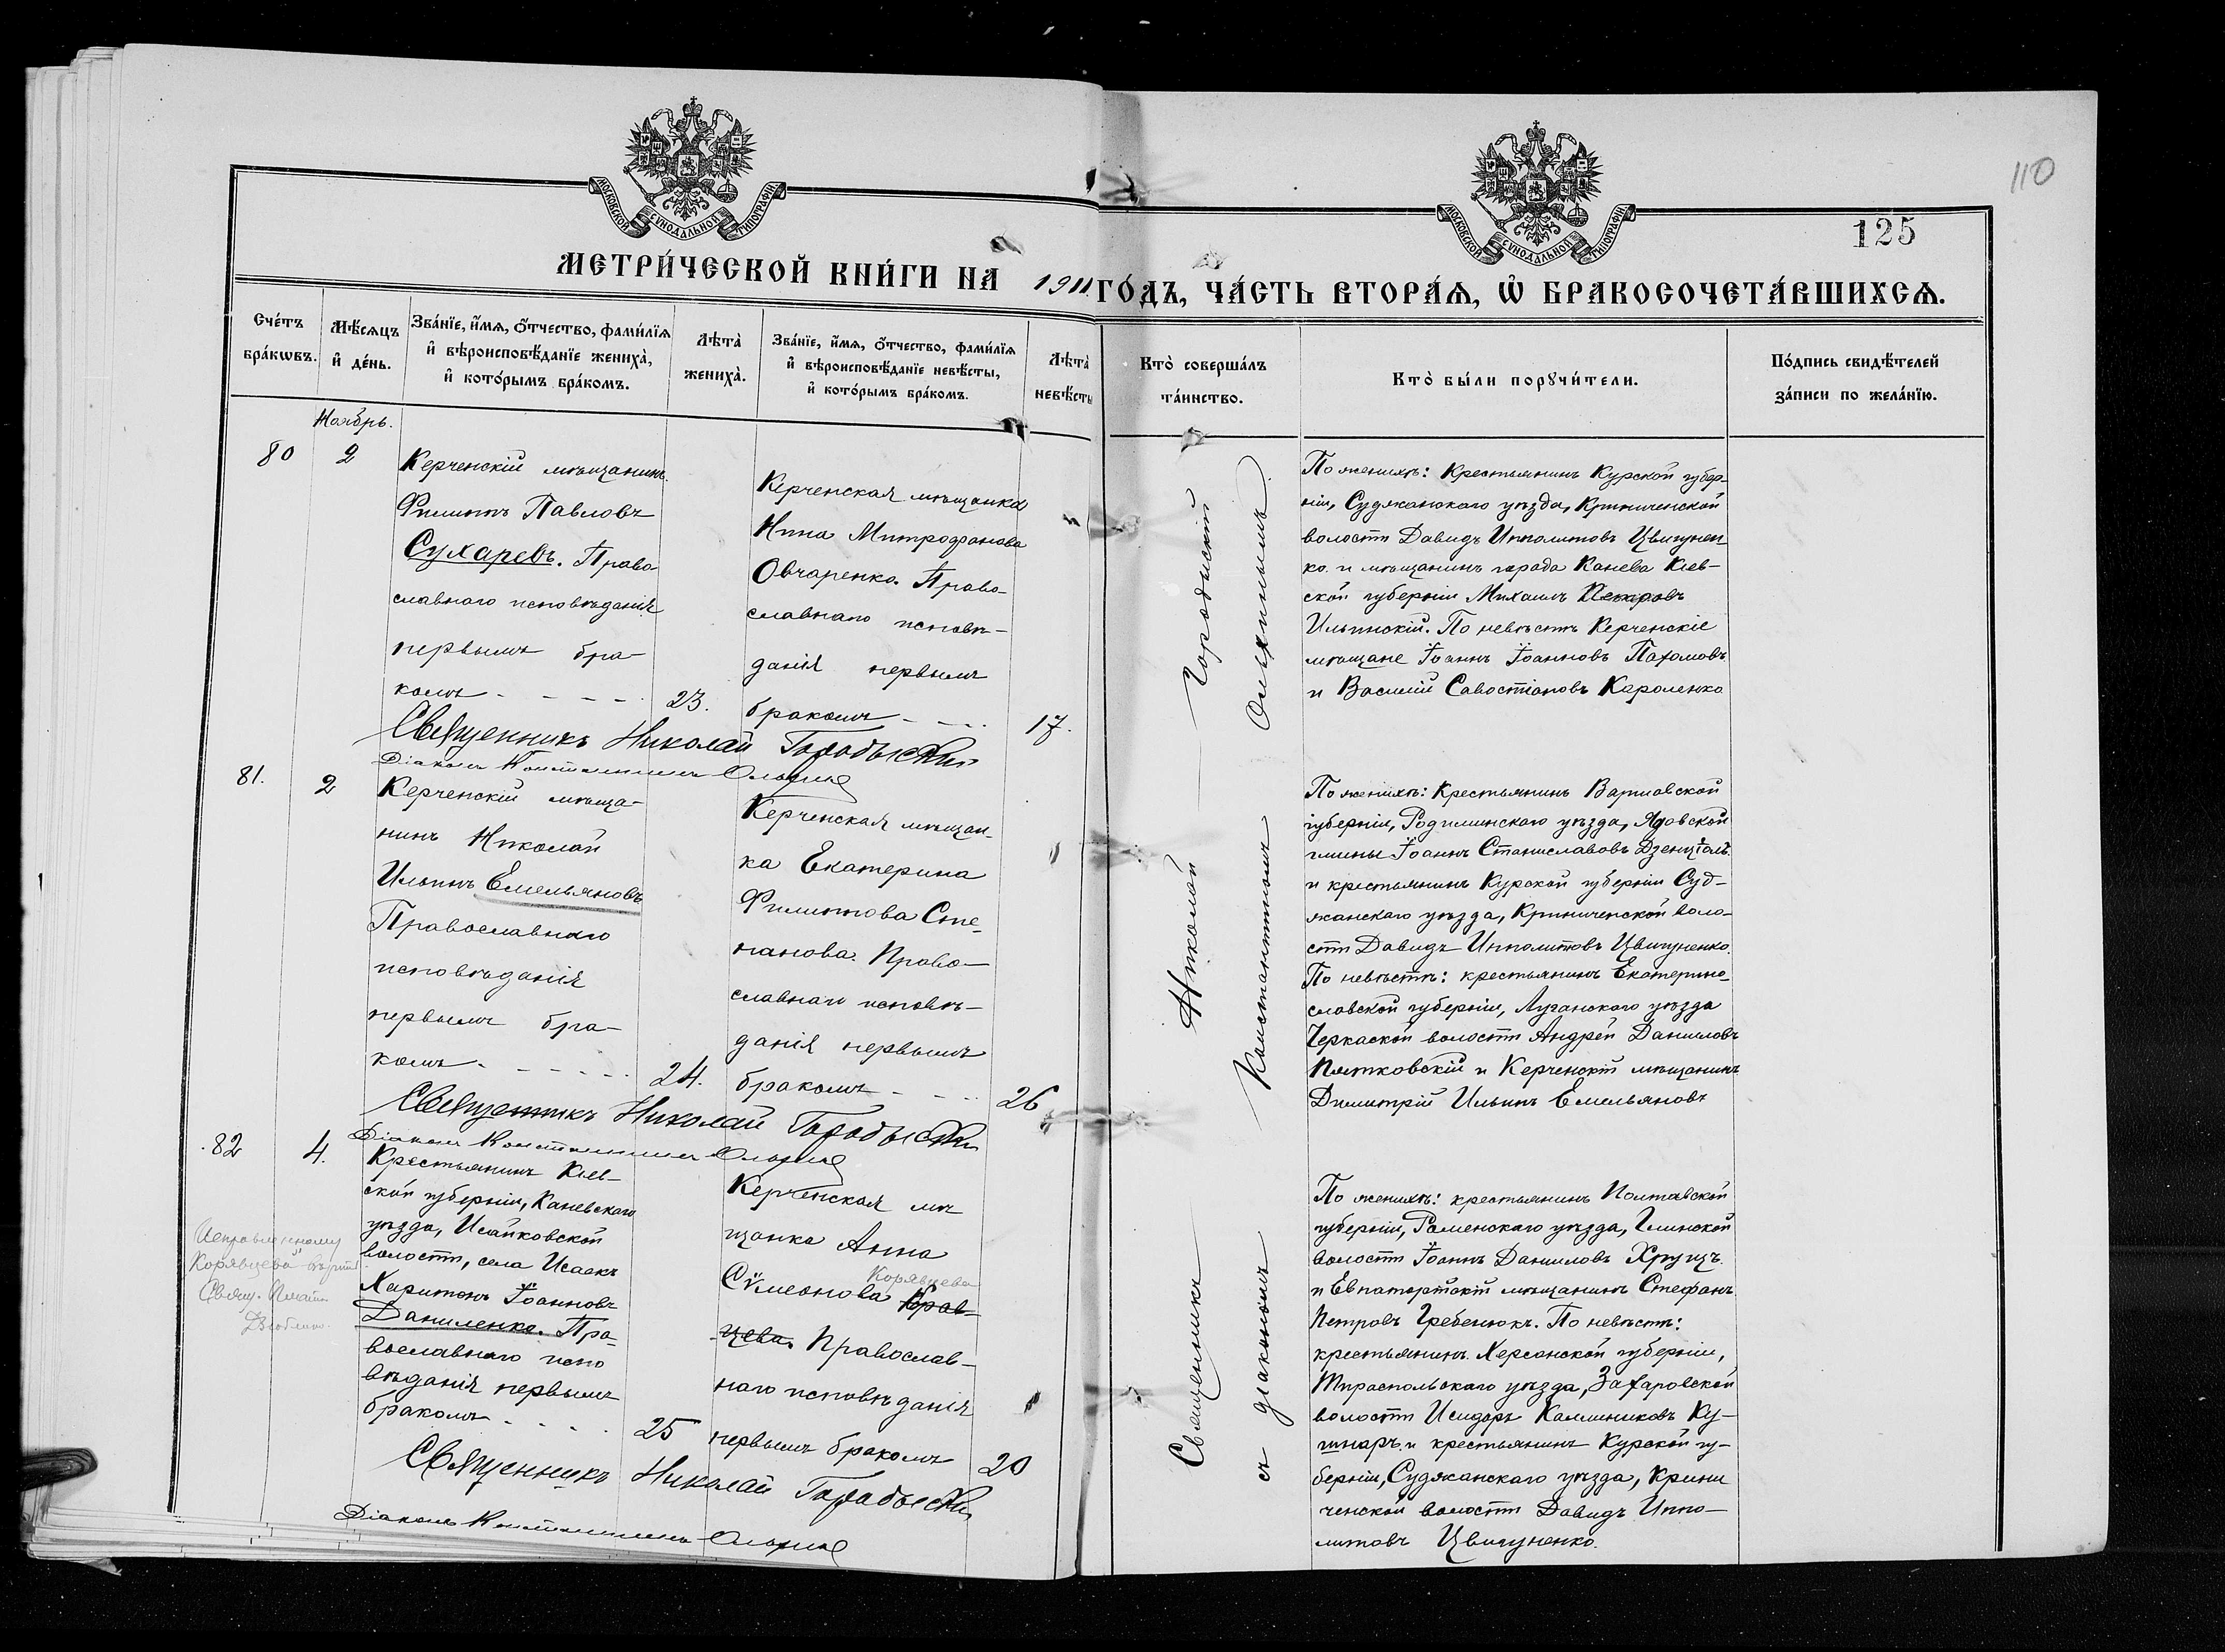 110
125
МОСКОВСКОЙ СѴНОДАЛЬНОЙ ТИПОГРАФІИ
МОСКОВСКОЙ СѴНОДАЛЬНОЙ ТИПОГРАФІИ
МЕТРИ́ЧЕСКОЙ КНИ́ГИ НА 1911 ГО́ДЪ, ЧА́СТЬ ВТОРА́Ѧ, Ѡ҆ БРАКОСОЧЕТА́ВШИХСѦ.
Сче́тъ
бра́кѡвъ.
Мѣ́сѧцъ
и҆ де́нь.
Зва́нїе, и҆́мѧ, ѻ҆́тчество, фами́лїѧ
и҆ вѣроисповѣ́данїе жениха̀,
и҆ кото́рымъ бра́комъ.
Лѣта̀
жениха̀.
Зва́нїе, и҆́мѧ, ѻ҆́тчество, фами́лїѧ
и҆ вѣроисповѣ́данїе невѣ́сты,
и҆ кото́рымъ бра́комъ.
Лѣта̀
невѣ́сты
Кто̀ соверша́лъ
та́инство.
Кто̀ бы́ли порꙋчи́тели.
По́дпись свидѣ́телей
за́писи по жела́нїю.
Ноябрь.
80
2
Керченскій мѣщанинъ
Филиппъ Павловъ
Сухаревъ. Право-
славнаго исповѣданія
первымъ бра-
комъ - - - -
23.
Керченская мѣщанка
Нина Митрофанова
Овчаренко. Право-
славнаго исповѣ-
данія первымъ
бракомъ - - -
17.
Священникъ Николай Городыскій
Діаконъ Константинъ
По женихѣ: Крестьянинъ Курской губер-
ніи, Суджанскаго уѣзда, Криниченской
волости Давидъ Ипполитовъ Цвигунен-
ко. и мѣщанинъ города Канева Кіев-
ской губерніи Михаилъ Петровъ
Ильинскій. По невѣстѣ Керченскіе
мѣщане Іоаннъ Іоанновъ Пахомовъ
и Василій Савостіановъ Кароленко
81.
2
Керченскій мѣща-
нинъ Николай
Ильинъ Емельяновъ
Православнаго
исповѣданія
первымъ бра-
комъ - - - - -
24.
Керченская мѣщан-
ка Екатерина
Филиппова Сте-
панова. Право-
славнаго исповѣ-
данія первымъ
бракомъ - - -
26
Священникъ Николай Городыскій
Діаконъ Константинъ
По женихѣ: Крестьянинъ Варшавской
губерніи, Радиминскаго уѣзда, Ядовской
гмины Іоаннъ Станиславовъ
и крестьянинъ Курской губерніи Суд-
жанскаго уѣзда, Криниченской воло-
сти Давидъ Ипполитовъ Цвигуненко.
По невѣстѣ: крестьянинъ Екатерино-
славской губерніи, Луганскаго уѣзда
Черкаской волости Андрей Даниловъ
Пятковскій и Керченскій мѣщанинъ
Димитрій Ильинъ Емельяновъ
82
4.
Крестьянинъ Кіев-
ской губерніи, Каневскаго
уѣзда, Исайковской
волости, села Исаекъ
Харитонъ Іоанновъ
Даниленко. Пра-
вославнаго испо
вѣданія первымъ
бракомъ - - - -
25
Керченская мѣ
щанка Анна
Сѵмеонова Крав-
Корявцева
цева. Православ-
наго исповѣданія
первымъ бракомъ
20
Исправленному
Корявцева вѣрить
Свящ.
Священникъ Николай Городыскій
Діаконъ Константинъ
По женихѣ: крестьянинъ Полтавской
губерніи, Роменскаго уѣзда, Глинской
волости Іоаннъ Даниловъ Хрущъ.
и Евпаторійскій мѣщанинъ Стефанъ
Петровъ Гребенюкъ. По невѣстѣ:
крестьянинъ Херсонской губерніи,
Тираспольскаго уѣзда, Захаровской
волости Исидоръ Калинниковъ Ку-
шнаръ. и крестьянинъ Курской гу-
берніи, Суджанскаго уѣзда, Крини
ченской волости Давидъ Иппо-
литовъ Цвигуненко.
Священникъ Николай Городыскій
съ діакономъ Константиномъ